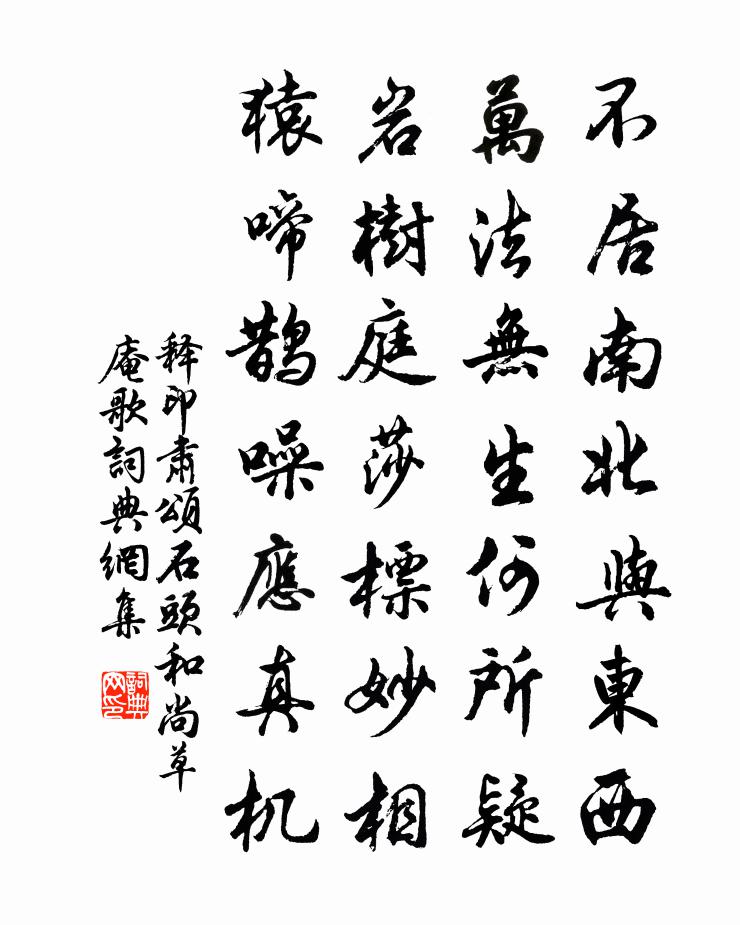 不居南北與東西
萬法無生何所疑
岩樹庭莎標妙相
猿啼鵲噪應真机
释印肅頌石頭和尚草
庵歌詞典網集
詞典
网印